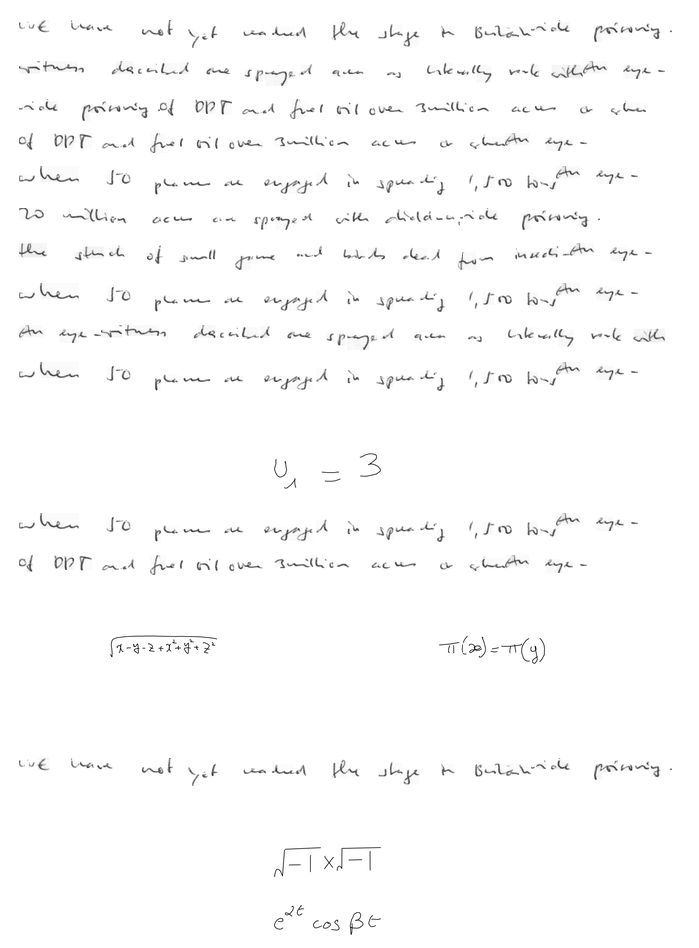 We have not yet reached the stage in Britain-ide poisoning.
witness described one sprayed area as literally reek with An eye-
-ide poisoning of DDT and fuel oil over 3 million acres or when
of DDT and fuel oil over 3 million acres or when An eye-
when 50 planes are engaged in spreading 1,500 tons An eye-
20 million acres are sprayed with dieldrin, -ide poisoning.
the stench of small game and birds dead from insecti- An eye-
when 50 planes are engaged in spreading 1,500 tons An eye-
An eye-witness described one sprayed area as literally reek with
when 50 planes are engaged in spreading 1,500 tons An eye-
U_1 = 3
when 50 planes are engaged in spreading 1,500 tons An eye-
of DDT and fuel oil over 3 million acres or when An eye-
√(x-y-z+x²+y²+z²) π(x)=π(y)
We have not yet reached the stage in Britain-ide poisoning.
√-1 × √-1
e^{2t} cos βt